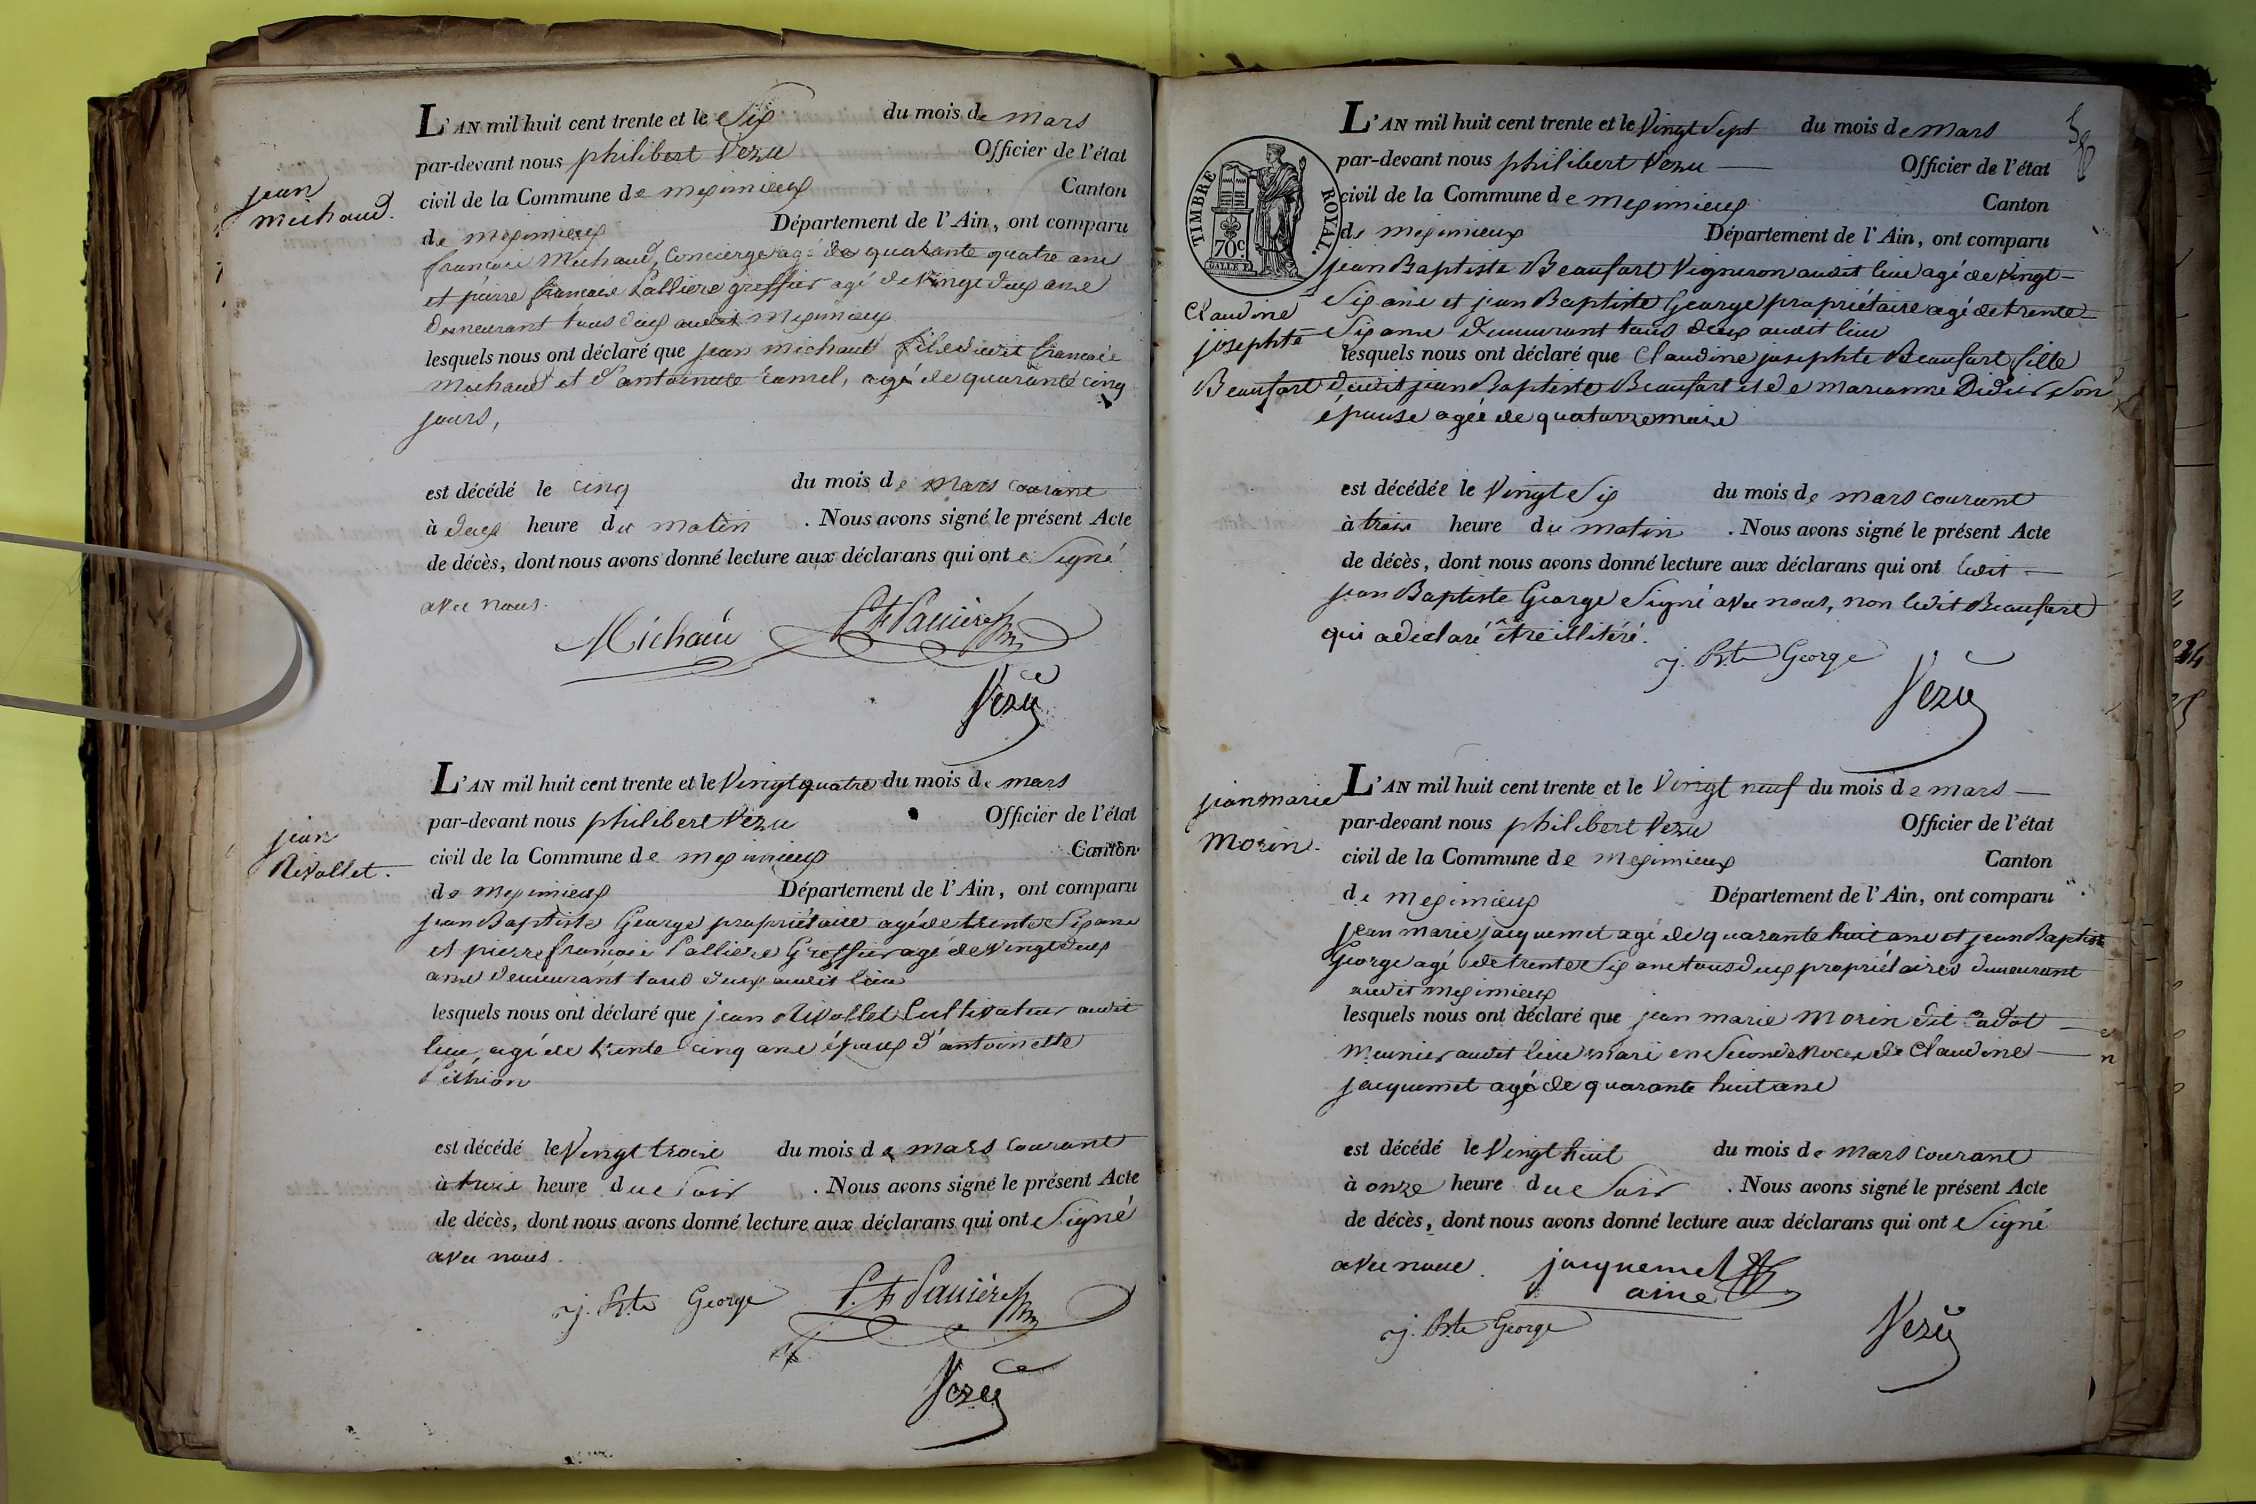 L'AN mil huit cent trente et le Six du mois de mars
par-devant nous philibert Vezu Officier de l'état
jean
civil de la Commune de meximieux Canton
michaud.
de meximieux Département de l'Ain, ont comparu
francois Michaud, Concierge agé de quarante quatre ans
et pierre francois Pallière greffier agé de Vingt deux ans
demeurant tous deux audit meximieux
lesquels nous ont déclaré que jean michaud fils dudit francois
Michaud et d'antoinette ramel, agé de quarante cinq
jours,
est décédé le cinq du mois de mars courant
à deux heure du matin . Nous avons signé le présent Acte
de décès, dont nous avons donné lecture aux déclarans qui ont Signé
avec nous.
Michaud P. F. Pallière
Vezu
L'AN mil huit cent trente et le Vingt quatre du mois de mars
par-devant nous philibert Vezu Officier de l'état
jean
civil de la Commune de meximieux Canton
Rivollet.
de meximieux Département de l'Ain, ont comparu
jean Baptiste George propriétaire agé de trente Six ans
et pierre francois Pallière Greffier agé de Vingt deux
ans demeurant tous deux audit lieu
lesquels nous ont déclaré que jean Rivollet Cultivateur audit
lieu, agé de trente cinq ans époux d'antoinette
est décédé le Vingt trois du mois de mars courant
à trois heure du Soir . Nous avons signé le présent Acte
de décès, dont nous avons donné lecture aux déclarans qui ont Signé
avec nous.
j. Bte George P. F. Pallière
Vezu
L'AN mil huit cent trente et le Vingt Sept du mois de mars
par-devant nous philibert Vezu Officier de l'état
TIMBRE ROYAL.
70c.
civil de la Commune de meximieux Canton
de meximieux Département de l'Ain, ont comparu
jean Baptiste Beaufort Vigneron audit lieu agé de Vingt
Claudine
Six ans et jean Baptiste George propriétaire agé de trente
Six ans demeurant tous deux audit lieu
josephte
lesquels nous ont déclaré que Claudine josephte Beaufort fille
Beaufort
dudit jean Baptiste Beaufort et de marianne Didier Son
épouse agée de quatorze mois
est décédée le Vingt Six du mois de mars courant
à trois heure du matin . Nous avons signé le présent Acte
de décès, dont nous avons donné lecture aux déclarans qui ont ledit
jean Baptiste George Signé avec nous, non ledit Beaufort
qui a déclaré être illitéré.
j. Bte George
Vezu
L'AN mil huit cent trente et le Vingt neuf du mois de mars
jean marie
par-devant nous philibert Vezu Officier de l'état
morin.
civil de la Commune de meximieux Canton
de meximieux Département de l'Ain, ont comparu
jean marie jacquemet agé de quarante huit ans et jean Baptiste
George agé de trente Six ans tous deux propriétaires demeurant
audit meximieux
lesquels nous ont déclaré que jean marie morin dit
meunier audit lieu mari en Secondes noces de Claudine
jacquemet agé de quarante huit ans
est décédé le Vingt huit du mois de mars courant
à onze heure du Soir . Nous avons signé le présent Acte
de décès, dont nous avons donné lecture aux déclarans qui ont Signé
avec nous. jacquemet
ainé
j. Bte George Vezu